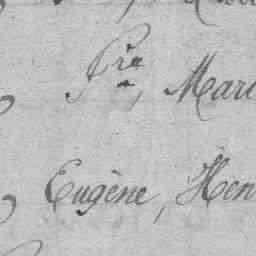 Fra, Mari
Eugène, Hen